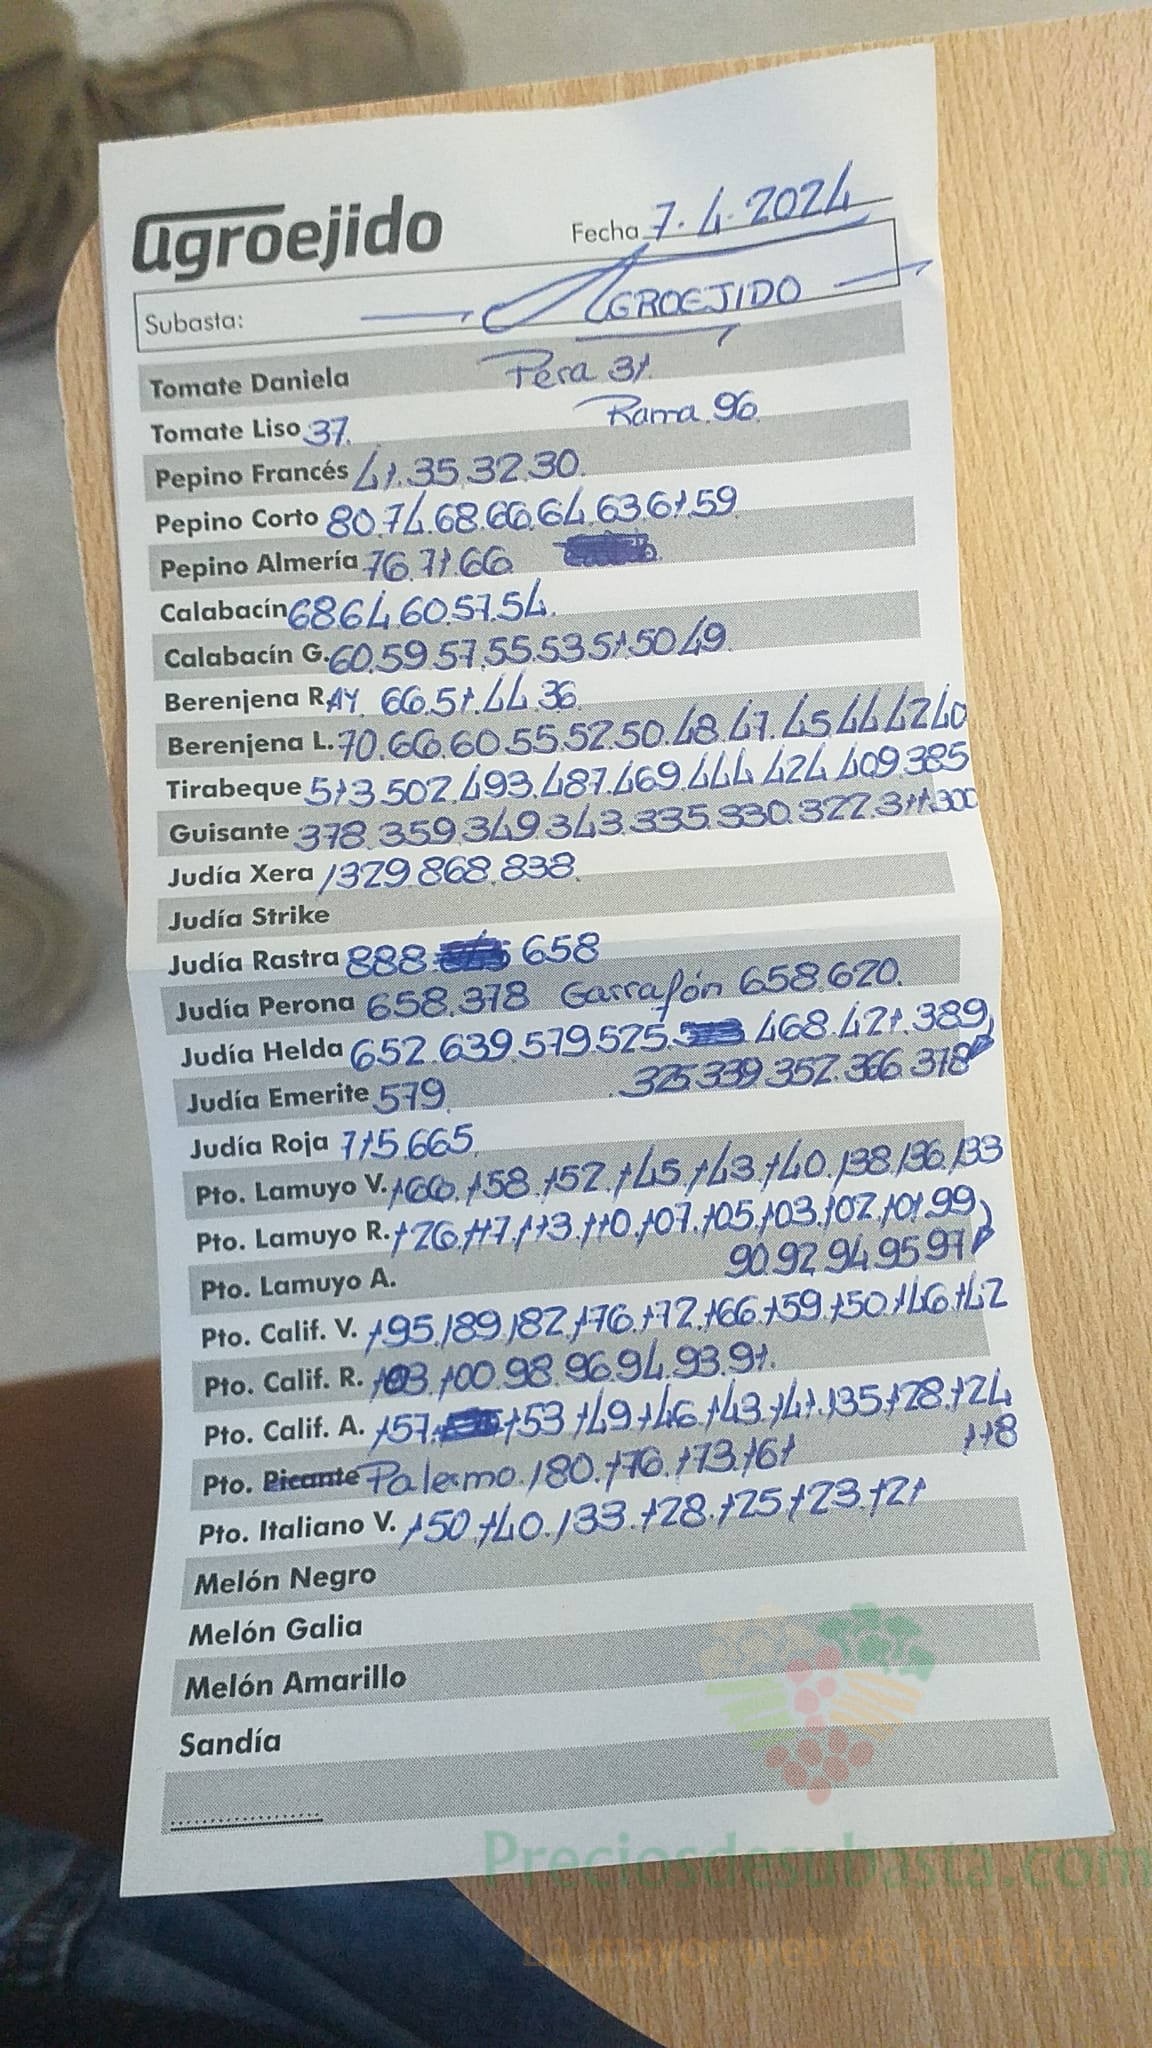 agroejido
Fecha 7.4.2024
Subasta: AGROEJIDO
Tomate Daniela Pera 31.
Tomate Liso 37. Rama 96
Pepino Francés 41.35.32.30.
Pepino Corto 80.74.68.66.64.63.61.59
Pepino Almería 76.71.66
Calabacín 68.64.60.57.54.
Calabacín G. 60.59.57.55.53.51.50.49.
Berenjena RAY. 66.51.44.36
Berenjena L. 70.66.60.55.52.50.48.47.45.44.42.40
Tirabeque 513.502.493.487.469.444.424.409.385
Guisante 378.359.349.343.335.330.322.311.300
Judía Xera 1329.868.838.
Judía Strike
Judía Rastra 888 658
Judía Perona 658.378 Garrafón 658.620.
Judía Helda 652.639.579.525. 468.421.389
Judía Emerite 579 325.339.352.366.378
Judía Roja 715.665
Pto. Lamuyo V. 166.158.152.145.143.140.138.136.133
Pto. Lamuyo R. 126.117.113.110.107.105.103.102.101.99
Pto. Lamuyo A. 90.92.94.95.97
Pto. Calif. V. 195.189.182.176.172.166.159.150.146.142
Pto. Calif. R. 103.100.98.96.94.93.91.
Pto. Calif. A. 157. 153.149.146.143.141.135.128.124
118
Pto. Picante Palermo.180.176.173.161
Pto. Italiano V. 150.140.133.128.125.123.121
Melón Negro
Melón Galia
Melón Amarillo
Sandía
Preciosdesubasta.com
La mayor web de hortalizas